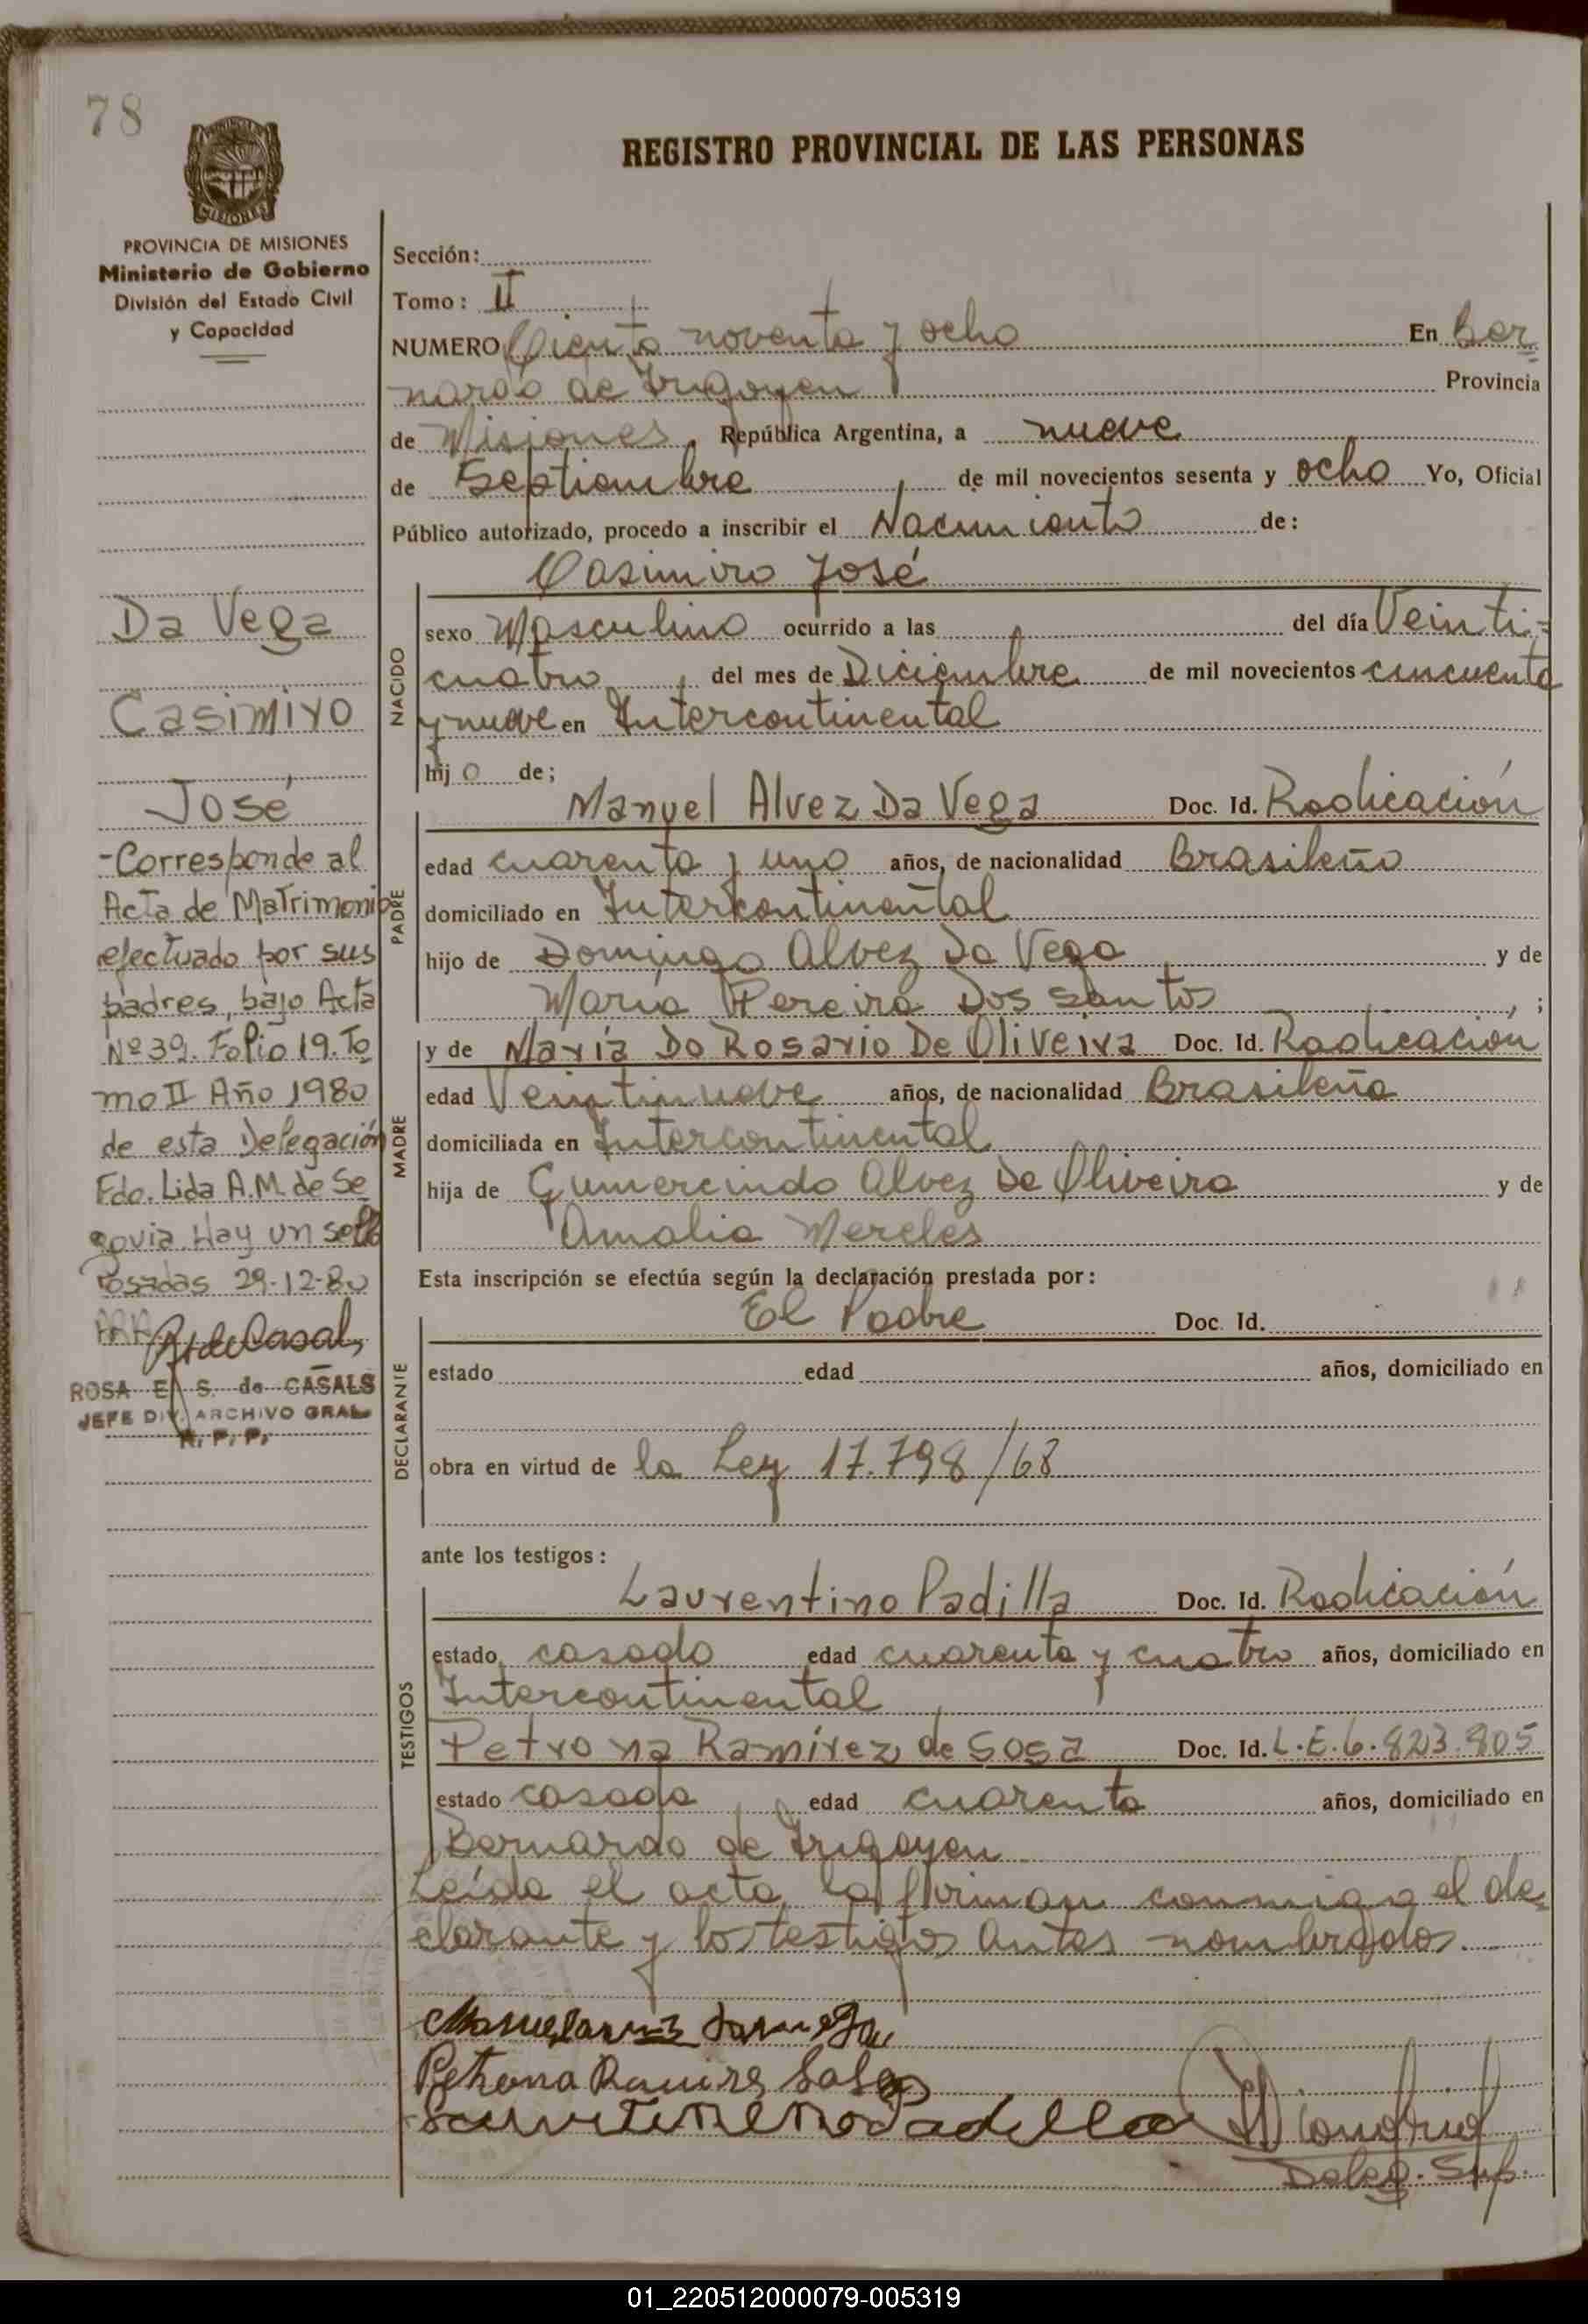 78
REGISTRO PROVINCIAL DE LAS PERSONAS
MISIONES
PROVINCIA DE MISIONES
Ministerio de Gobierno
División del Estado Civil
y Capacidad
Da Vega
Casimiro
José
-Corresponde al
Acta de Matrimonio
efectuado por sus
padres, bajo Acta
Nº 39. Folio 19. To
mo II Año 1980
de esta Delegación
Fdo. Lida A.M. de Se
govia. Hay un sello
Posadas 29-12-80
ROSA E. S. de CASALS
JEFE DIV. ARCHIVO GRAL
R. P. P.
Sección:
Tomo: II
NUMERO Ciento noventa y ocho En Ber
nardo de Irigoyen Provincia
de Misiones, República Argentina, a nueve
de Septiembre de mil novecientos sesenta y ocho Yo, Oficial
Público autorizado, procedo a inscribir el Nacimiento de:
Casimiro José
NACIDO
sexo Masculino ocurrido a las del día Veinti-
cuatro del mes de Diciembre de mil novecientos cincuenta
y nueve en Intercontinental
hijo de;
PADRE
Manuel Alvez Da Vega Doc. Id. Radicación
edad cuarenta y uno años, de nacionalidad Brasileño
domiciliado en Intercontinental
hijo de Domingo Alvez Da Vega y de
María Pereira Dos Santos ;
MADRE
y de María Do Rosario De Oliveira Doc. Id. Radicación
edad Veintinueve años, de nacionalidad Brasileña
domiciliada en Intercontinental
hija de Gumercindo Alvez De Oliveira y de
Amalia Mereles
Esta inscripción se efectúa según la declaración prestada por:
DECLARANTE
El Padre Doc. Id.
estado edad años, domiciliado en
obra en virtud de la Ley 17.798/68
ante los testigos:
TESTIGOS
Laurentino Padilla Doc. Id. Radicación
estado casado edad cuarenta y cuatro años, domiciliado en
Intercontinental
Petrona Ramirez de Sosa Doc. Id. L.E. 6.823.805
estado casada edad cuarenta años, domiciliado en
Bernardo de Irigoyen
Leída el acta, la firman conmigo el de
clarante y los testigos antes nombrados.
Petrona Ramires Sosa
Padilla
Deleg. Sup.
01_220512000079-005319